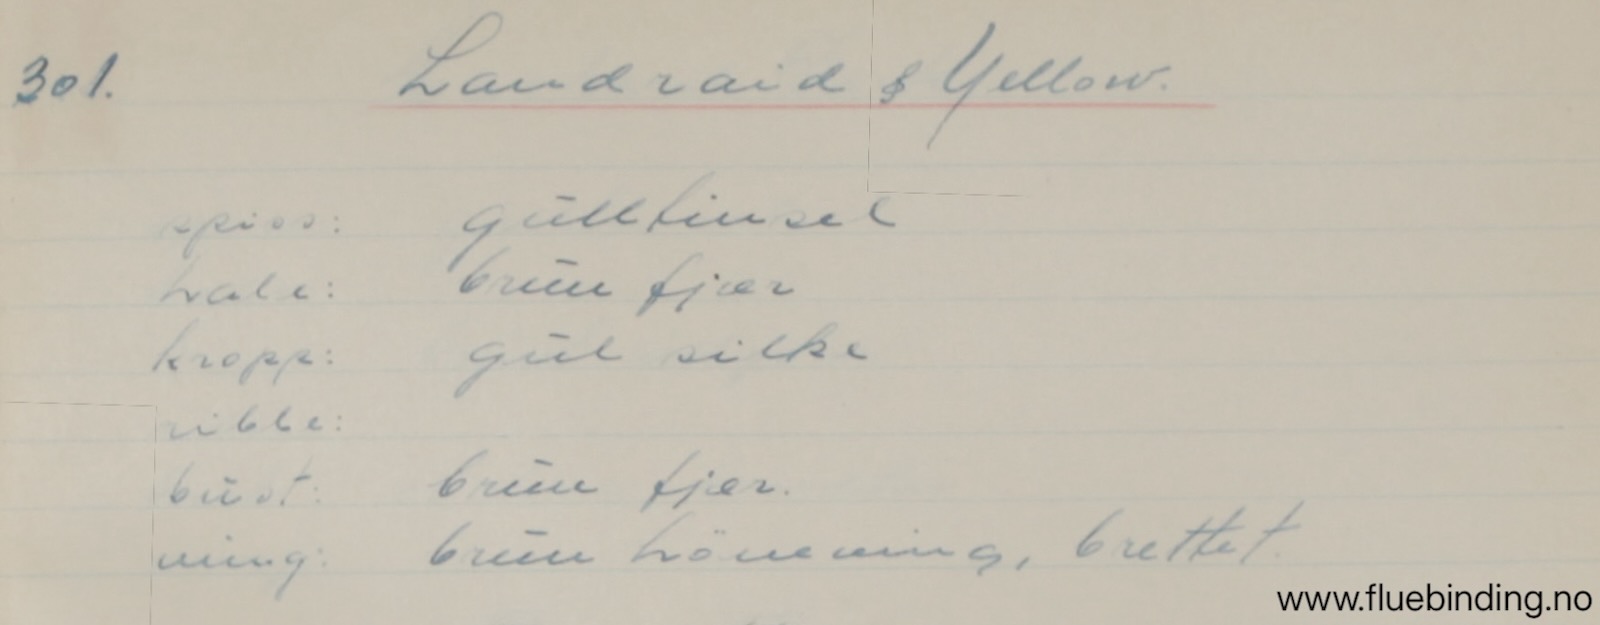 301. Landraid & Yellow.
spiss: gülltinsel
hale: brün fjær
kropp: gül silke
ribbe:
büst: brün fjær.
ving: brün hönseving, brettet.
www.fluebinding.no